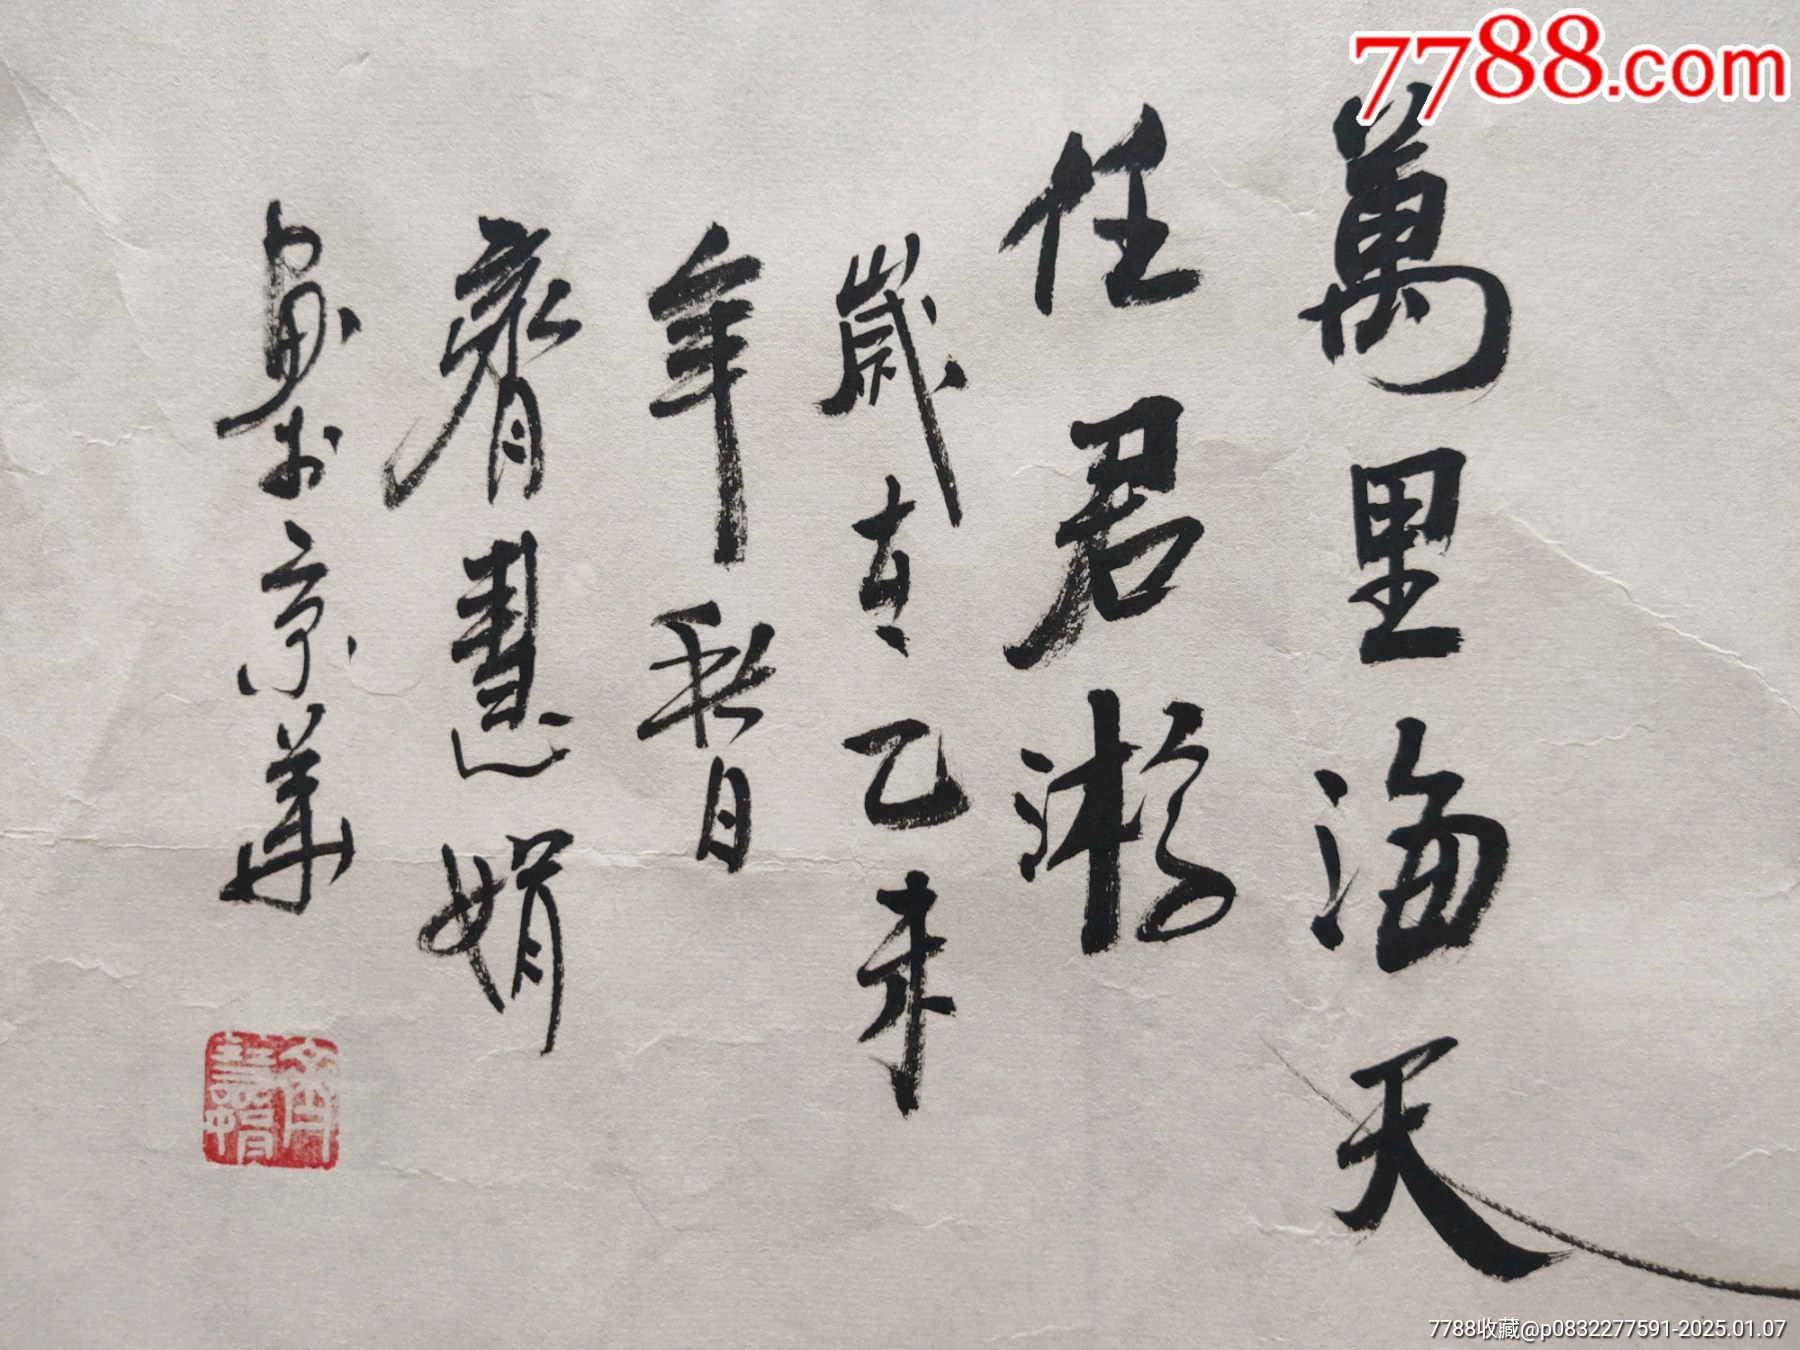 7788.com
萬里海天
任君游
歲在乙未
年秋月
齊慧娟
畫於京華
7788收藏@p0832277591-2025.01.07